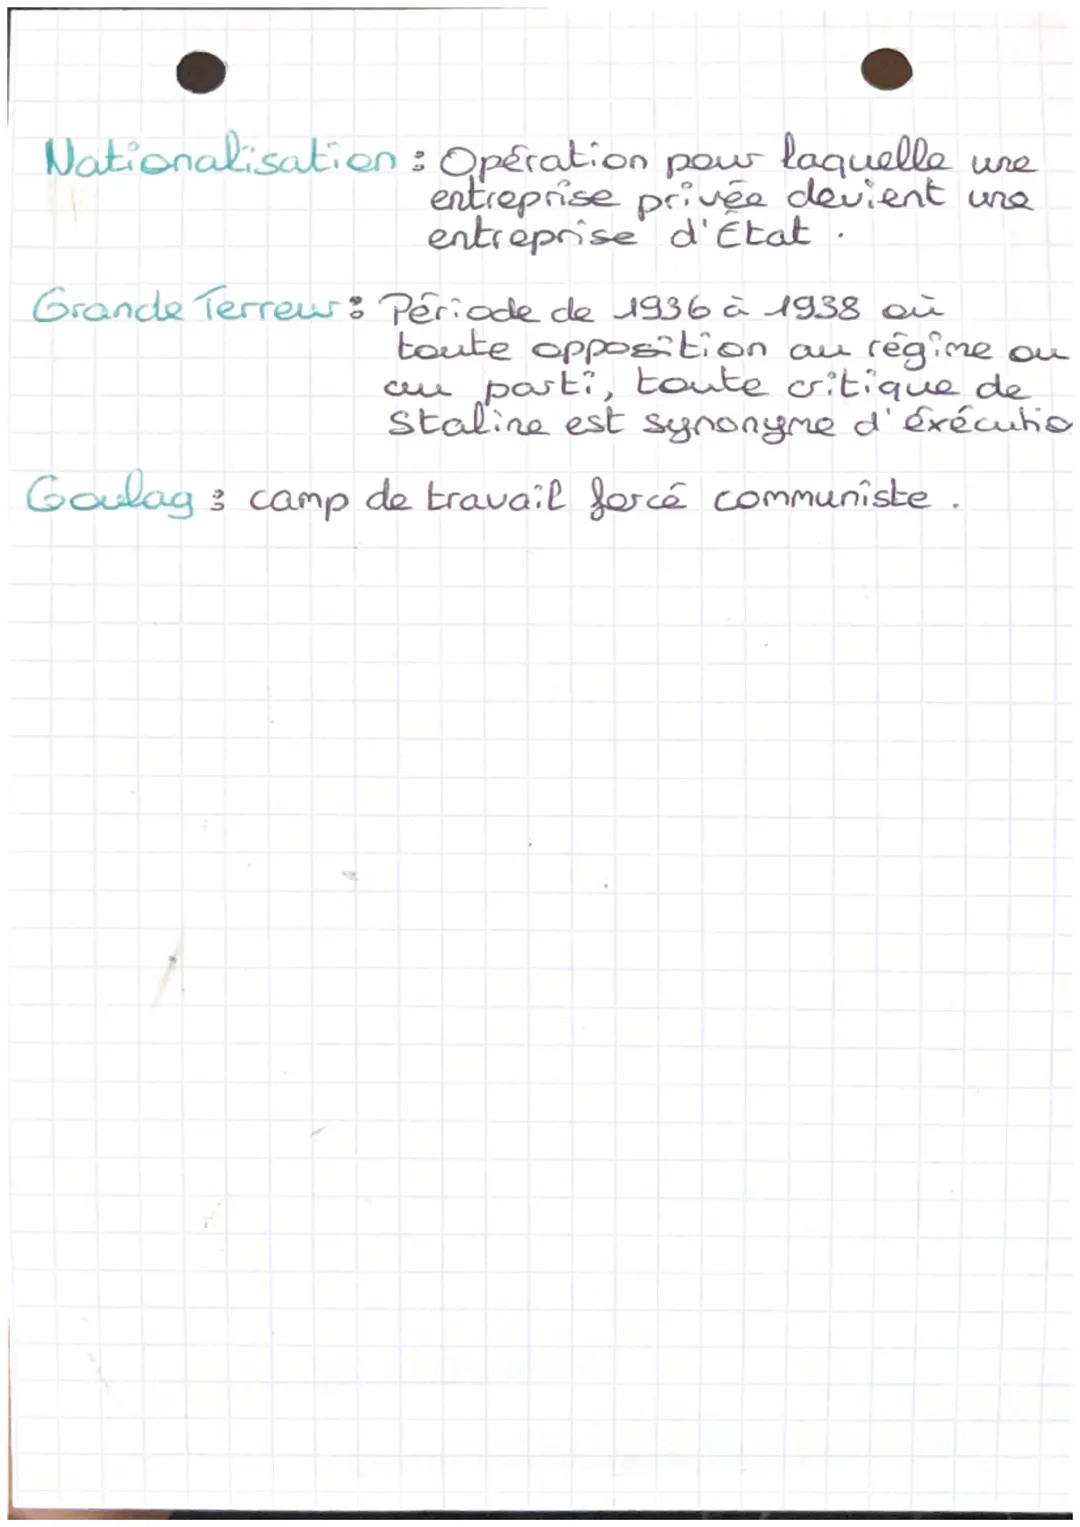 Nationalisation : Opération pour laquelle une
entreprise privée devient une
entreprise d'État .
Grande Terreur : Période de 1936 à 1938 où
toute opposition au régime ou
au parti, toute critique de
Staline est synonyme d'éxécutio
Goulag : camp de travail forcé communiste .